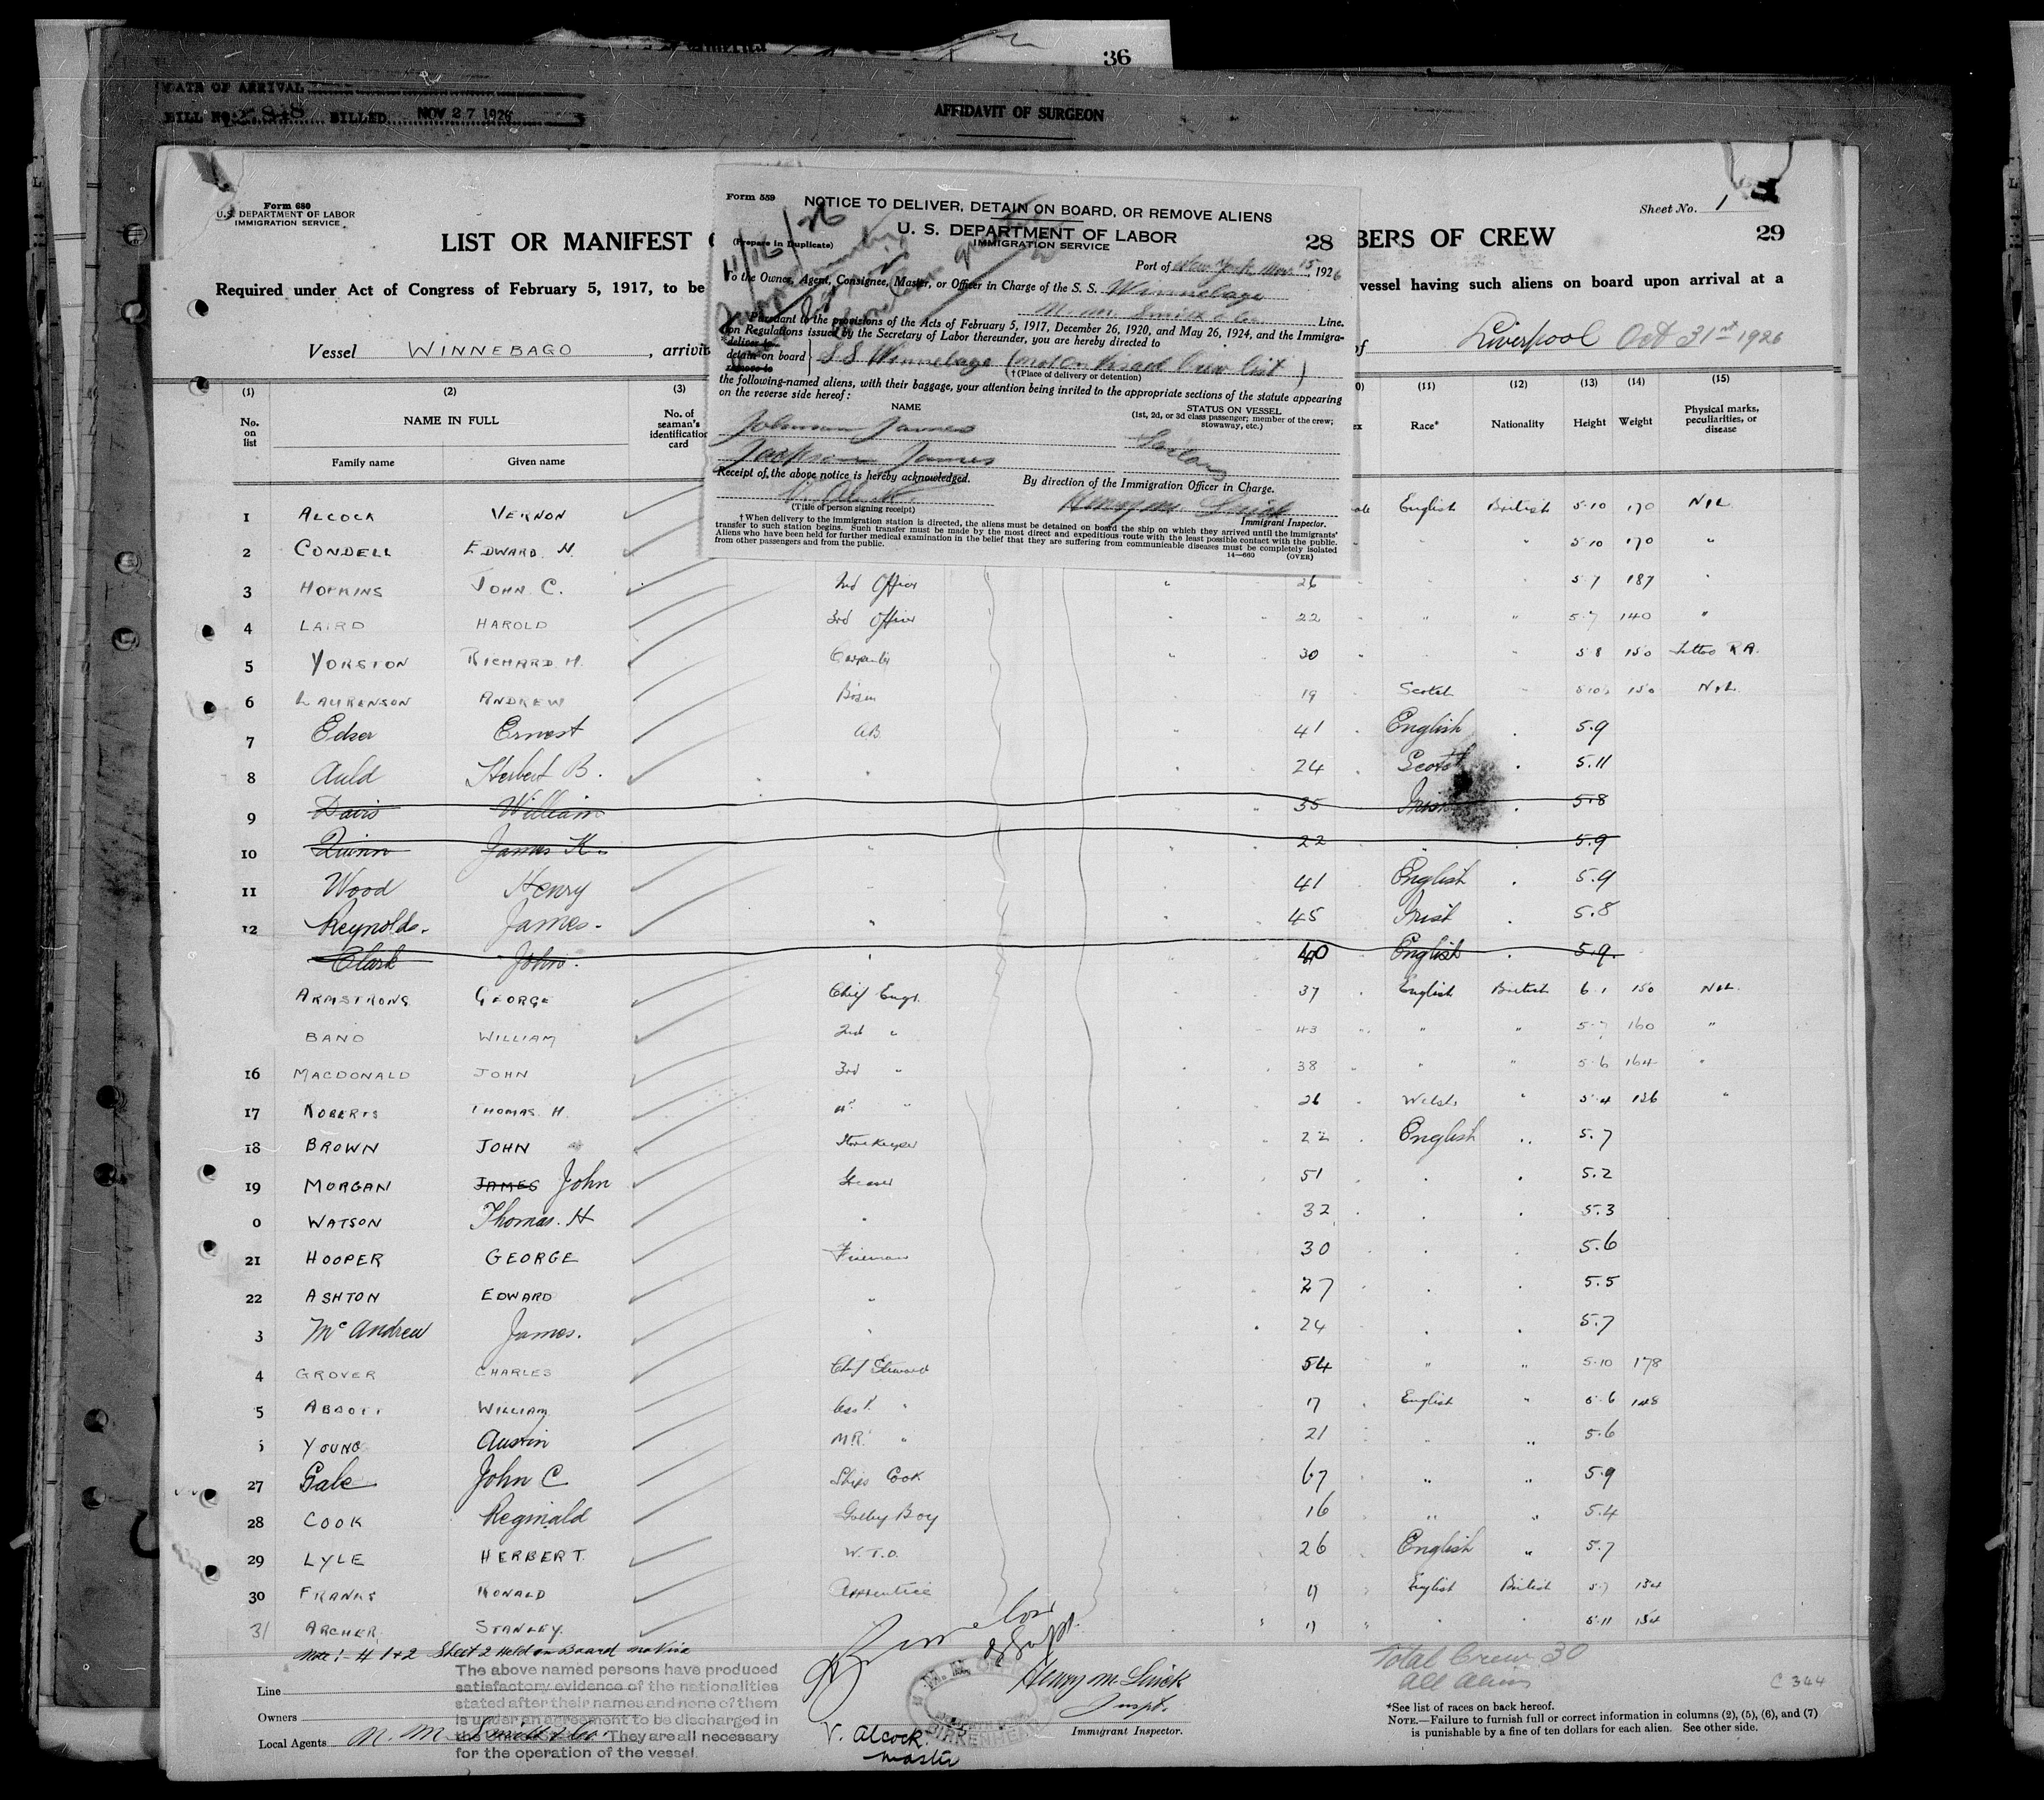 36
DATE OF ARRIVAL
BILL NO. 2848 BILLED NOV 27 1926
AFFIDAVIT OF SURGEON
Form 680
U.S. DEPARTMENT OF LABOR
IMMIGRATION SERVICE
Sheet No. 1
LIST OR MANIFEST
BERS OF CREW 29
Required under Act of Congress of February 5, 1917, to be
vessel having such aliens on board upon arrival at a
Vessel WINNEBAGO, arrivi
of Liverpool Oct 31st 1926
Form 559
NOTICE TO DELIVER, DETAIN ON BOARD, OR REMOVE ALIENS
11/16/26
(Prepare in Duplicate)
U. S. DEPARTMENT OF LABOR
IMMIGRATION SERVICE
28
Port of New York, Nov. 15, 1926
To the Owner, Agent, Consignee, Master, or Officer in Charge of the S. S. Winnebago
Line.
Pursuant to the provisions of the Acts of February 5, 1917, December 26, 1920, and May 26, 1924, and the Immigra-
tion Regulations issued by the Secretary of Labor thereunder, you are hereby directed to
deliver to
detain on board } S S Winnebago (not on Visaed Crew list)
remove to
†(Place of delivery or detention)
the following-named aliens, with their baggage, your attention being invited to the appropriate sections of the statute appearing
on the reverse side hereof:
NAME
STATUS ON VESSEL
(1st, 2d, or 3d class passenger; member of the crew;
stowaway, etc.)
Johnson James
Jackson James
Sailors
Receipt of the above notice is hereby acknowledged.
By direction of the Immigration Officer in Charge.
V. Alcock
Henry M. Smick
(Title of person signing receipt)
Immigrant Inspector.
†When delivery to the immigration station is directed, the aliens must be detained on board the ship on which they arrived until the immigrants'
transfer to such station begins. Such transfer must be made by the most direct and expeditious route with the least possible contact with the public.
Aliens who have been held for further medical examination in the belief that they are suffering from communicable diseases must be completely isolated
from other passengers and from the public.
14—660 (OVER)
(1) (2) (3) (11) (12) (13) (14) (15)
No. on list
NAME IN FULL
Family name Given name
No. of seaman's identification card
Race* Nationality Height Weight Physical marks, peculiarities, or disease
1 ALCOCK VERNON English British 5·10 170 NIL
2 CONDELL EDWARD. H 5·10 170 "
3 HOPKINS JOHN C. 2nd Officer 26 5·7 187 "
4 LAIRD HAROLD 3rd Officer 22 5·7 140 "
5 YORSTON RICHARD H. Carpenter 30 5·8 150 Tattoo R.A.
6 LAURENSON ANDREW Bosun 19 Scotch 150 NIL
7 Edser Ernest A.B. 41 English 5.9
8 Auld Herbert B. 24 Scotch 5.11
9 Davis William 35 Irish 5.8
10 Quinn James K. 22 5.9
11 Wood Henry 41 English 5.9
12 Reynolds. James. 45 Irish 5.8
Clark John. 40 English 5.9.
ARMSTRONG GEORGE Chief Engr. 37 English British 6·1 150 NIL
BAND WILLIAM 2nd " 43 " " 5·7 160 "
16 MACDONALD JOHN 3rd " 38 " " 5·6 164 "
17 ROBERTS THOMAS H. 4th " 26 Welsh " 5·4 126 "
18 BROWN JOHN Storekeeper 22 English 5.7
19 MORGAN JAMES John Greaser 51 5.2
0 WATSON Thomas. H 32 5.3
21 HOOPER GEORGE Fireman 30 5.6
22 ASHTON EDWARD " 27 5.5
3 McAndrew James. 24 5.7
4 GROVER CHARLES Chief Steward 54 " " 5·10 178
5 ABBOTT WILLIAM Asst. " 17 English " 5·6 148
YOUNG Austin M.R. " 21 5.6
27 Gale John C Ships Cook 67 " " 5.9
28 COOK Reginald Galley Boy 16 " " 5.4
29 LYLE HERBERT. W.T.O. 26 English " 5.7
30 FRANKS RONALD Apprentice 17 English British 5·7 134
31 ARCHER STANLEY. 17 5·11 154
Note:- # 1+2 Sheet 2 Held on Board no Visa
The above named persons have produced
satisfactory evidence of the nationalities
stated after their names and none of them
is under an agreement to be discharged in
They are all necessary
for the operation of the vessel.
Line
Owners
Local Agents
V. Alcock.
Master
Henry M. Smick
Inspt.
Immigrant Inspector.
Total Crew 30
All Aliens
C 344
*See list of races on back hereof.
NOTE.—Failure to furnish full or correct information in columns (2), (5), (6), and (7)
is punishable by a fine of ten dollars for each alien. See other side.